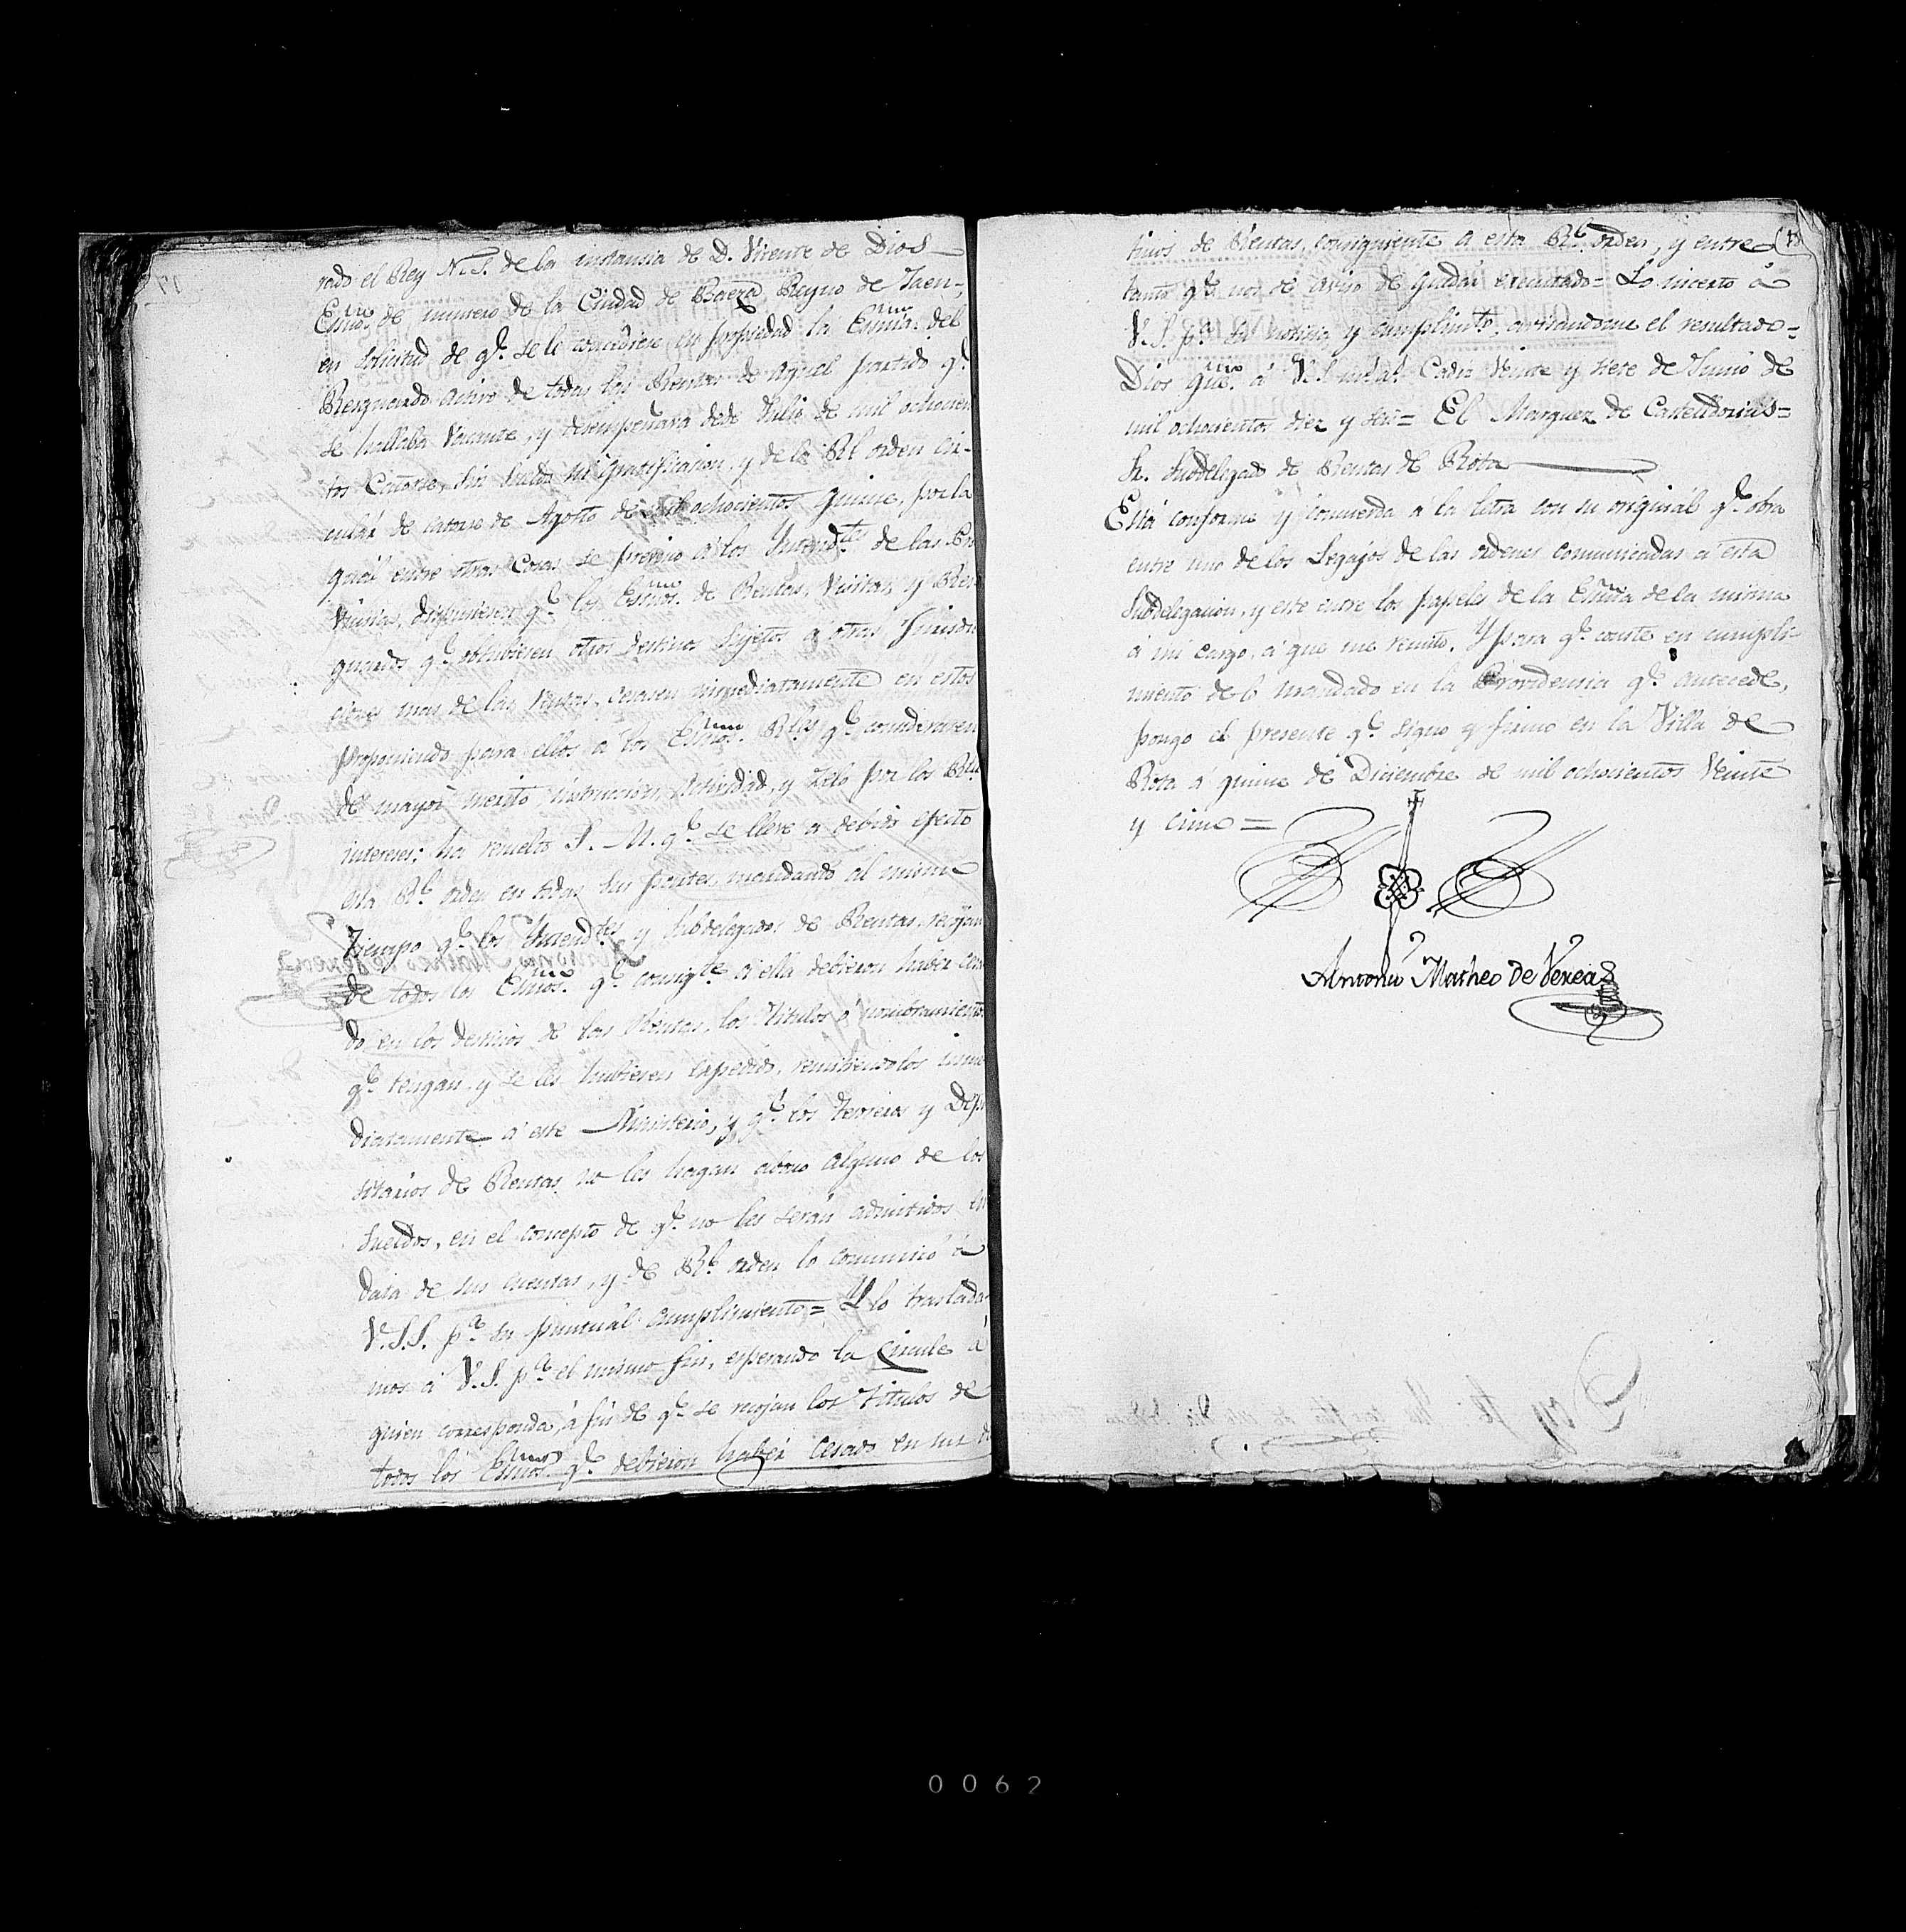 rado el Rey N. S. de la instancia de D. Vicente de Dios
Essno. de numero de la Ciudad de Baeza Reyno de Jaen,
en solicitud de qe. se le concediese en propiedad la Essnia. del
Resguardo activo de todas las Rentas de aquel partido qe.
se hallaba vacante, y desempeñara desde Julio de mil ochocien
tos catorse, sin sueldo ni gratificacion, y de la Rl orden cir-
cular de catorse de Agosto de mil ochocientos quinse, por la
qual entre otras cosas se previno á los Intendtes de las Pro
vincias, dispusiesen qe. los Essnos. de Rentas, Visitas, y Res
guardos qe. obtubiesen otros destinos sujetos á otras Jurisdic
ciones mas de las Rentas, cesasen inmediatamente en estos
proponiendo para ellos á los Essnos. Rles qe. considerasen
de mayor merito, instruccion, actividad, y zelo por los Rles
intereses; ha resuelto S. M. qe. se lleve a debido efecto
esta Rl. orden en todas sus partes, mandando al mismo
tiempo qe. los Intendtes y Subdelegados de Rentas, recojan
de todos los Essnos. qe. consigte. á ella debieron haber cesa
do en los destinos de las Rentas, los titulos ó nombramientos
qe. tengan y se les hubiesen expedido, remitiendolos inme
diatamente á este Ministerio, y qe. los Tesoreros y Depo
sitarios de Rentas no les hagan abono alguno de los
sueldos, en el concepto de qe. no les serán admitidos en
data de sus cuentas, y de Rl. orden lo comunico á
V.S.S. pa. su puntual cumplimiento = Y lo traslada
mos á V.S. pa. el mismo fin, esperando la circule á
quien corresponda, á fin de qe. se recojan los titulos de
todos los Essnos. qe. debieron haber cesado en sus des
tinos de Rentas, consiguiente a esta Rl. orden, y entre
tanto qe. nos dé aviso de quedar executado = Lo inserto á
V.S. pa. su noticia y cumplimto. avisandome el resultado =
Dios gue. á V.S. ms. as. Cadiz veinte y siete de Junio de
mil ochocientos diez y seis = El Marquez de Casteldorrius =
Sr. Subdelegado de Rentas de Rota
Está conforme y concuerda a la letra con su original qe. obra
entre uno de los Legajos de las ordenes comunicadas á esta
Subdelegacion, y este entre los papeles de la Essnia de la misma
á mi cargo, á que me remito. Y para qe. conste en cumpli-
miento de lo mandado en la Providencia qe. antecede,
pongo el presente qe. signo y firmo en la Villa de
Rota á quinse de Diciembre de mil ochocientos veinte
y cinco =
Antonio Matheo de Verea
0062